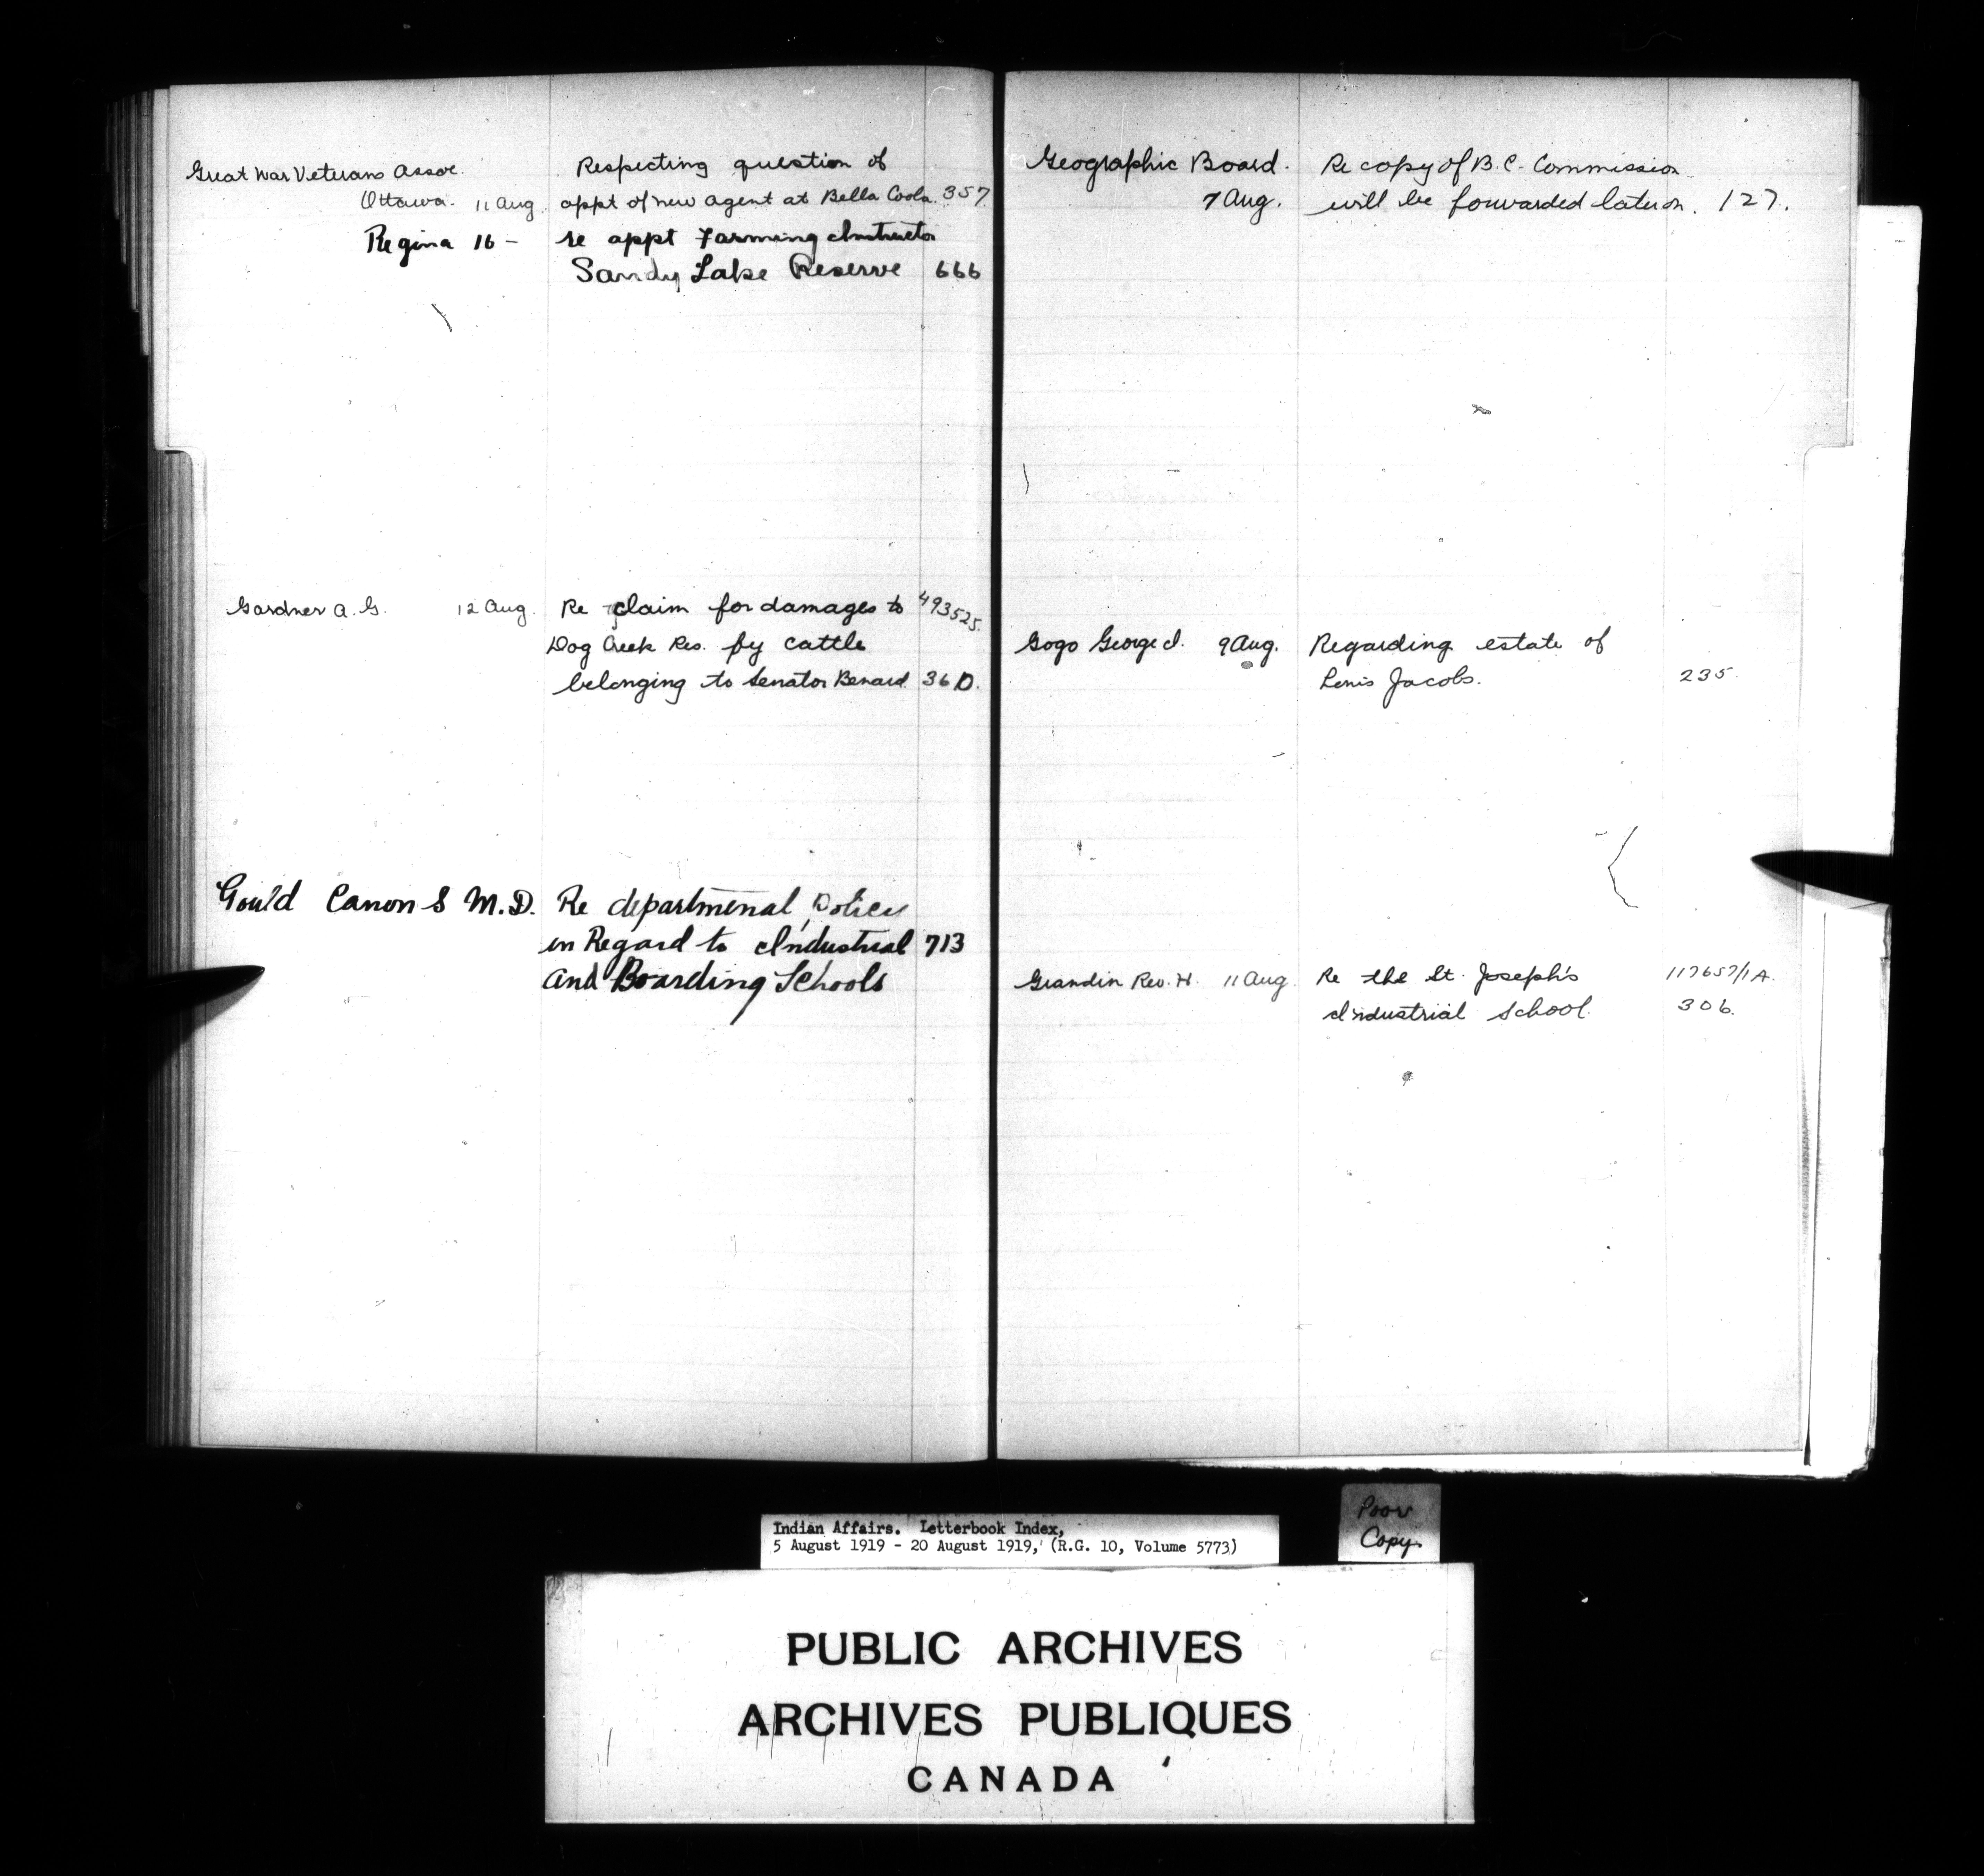 Great War Veterans Assoc.
Respecting question of
Ottawa. 11 Aug. appt of new Agent at Bella Coola. 357
Regina 16 - re appt Farming Instructor
Sandy Lake Reserve 666
Gardner A. G. 12 Aug. Re claim for damages to 493525.
Dog Creek Res. by cattle
belonging to Senator Benard. 36 D.
Gould Canon S M.D. Re departmental Policy
in Regard to Industrial 713
and Boarding Schools
Geographic Board. Re copy of B.C. Commission
7 Aug. will be forwarded later on. 127.
Gogo George I. 9 Aug. Regarding estate of
Louis Jacobs. 235.
Grandin Rev. H. 11 Aug. Re the St. Joseph's 117657/1A.
Industrial School. 306.
Indian Affairs. Letterbook Index,
5 August 1919 - 20 August 1919, (R.G. 10, Volume 5773)
Poor
Copy.
PUBLIC ARCHIVES
ARCHIVES PUBLIQUES
CANADA